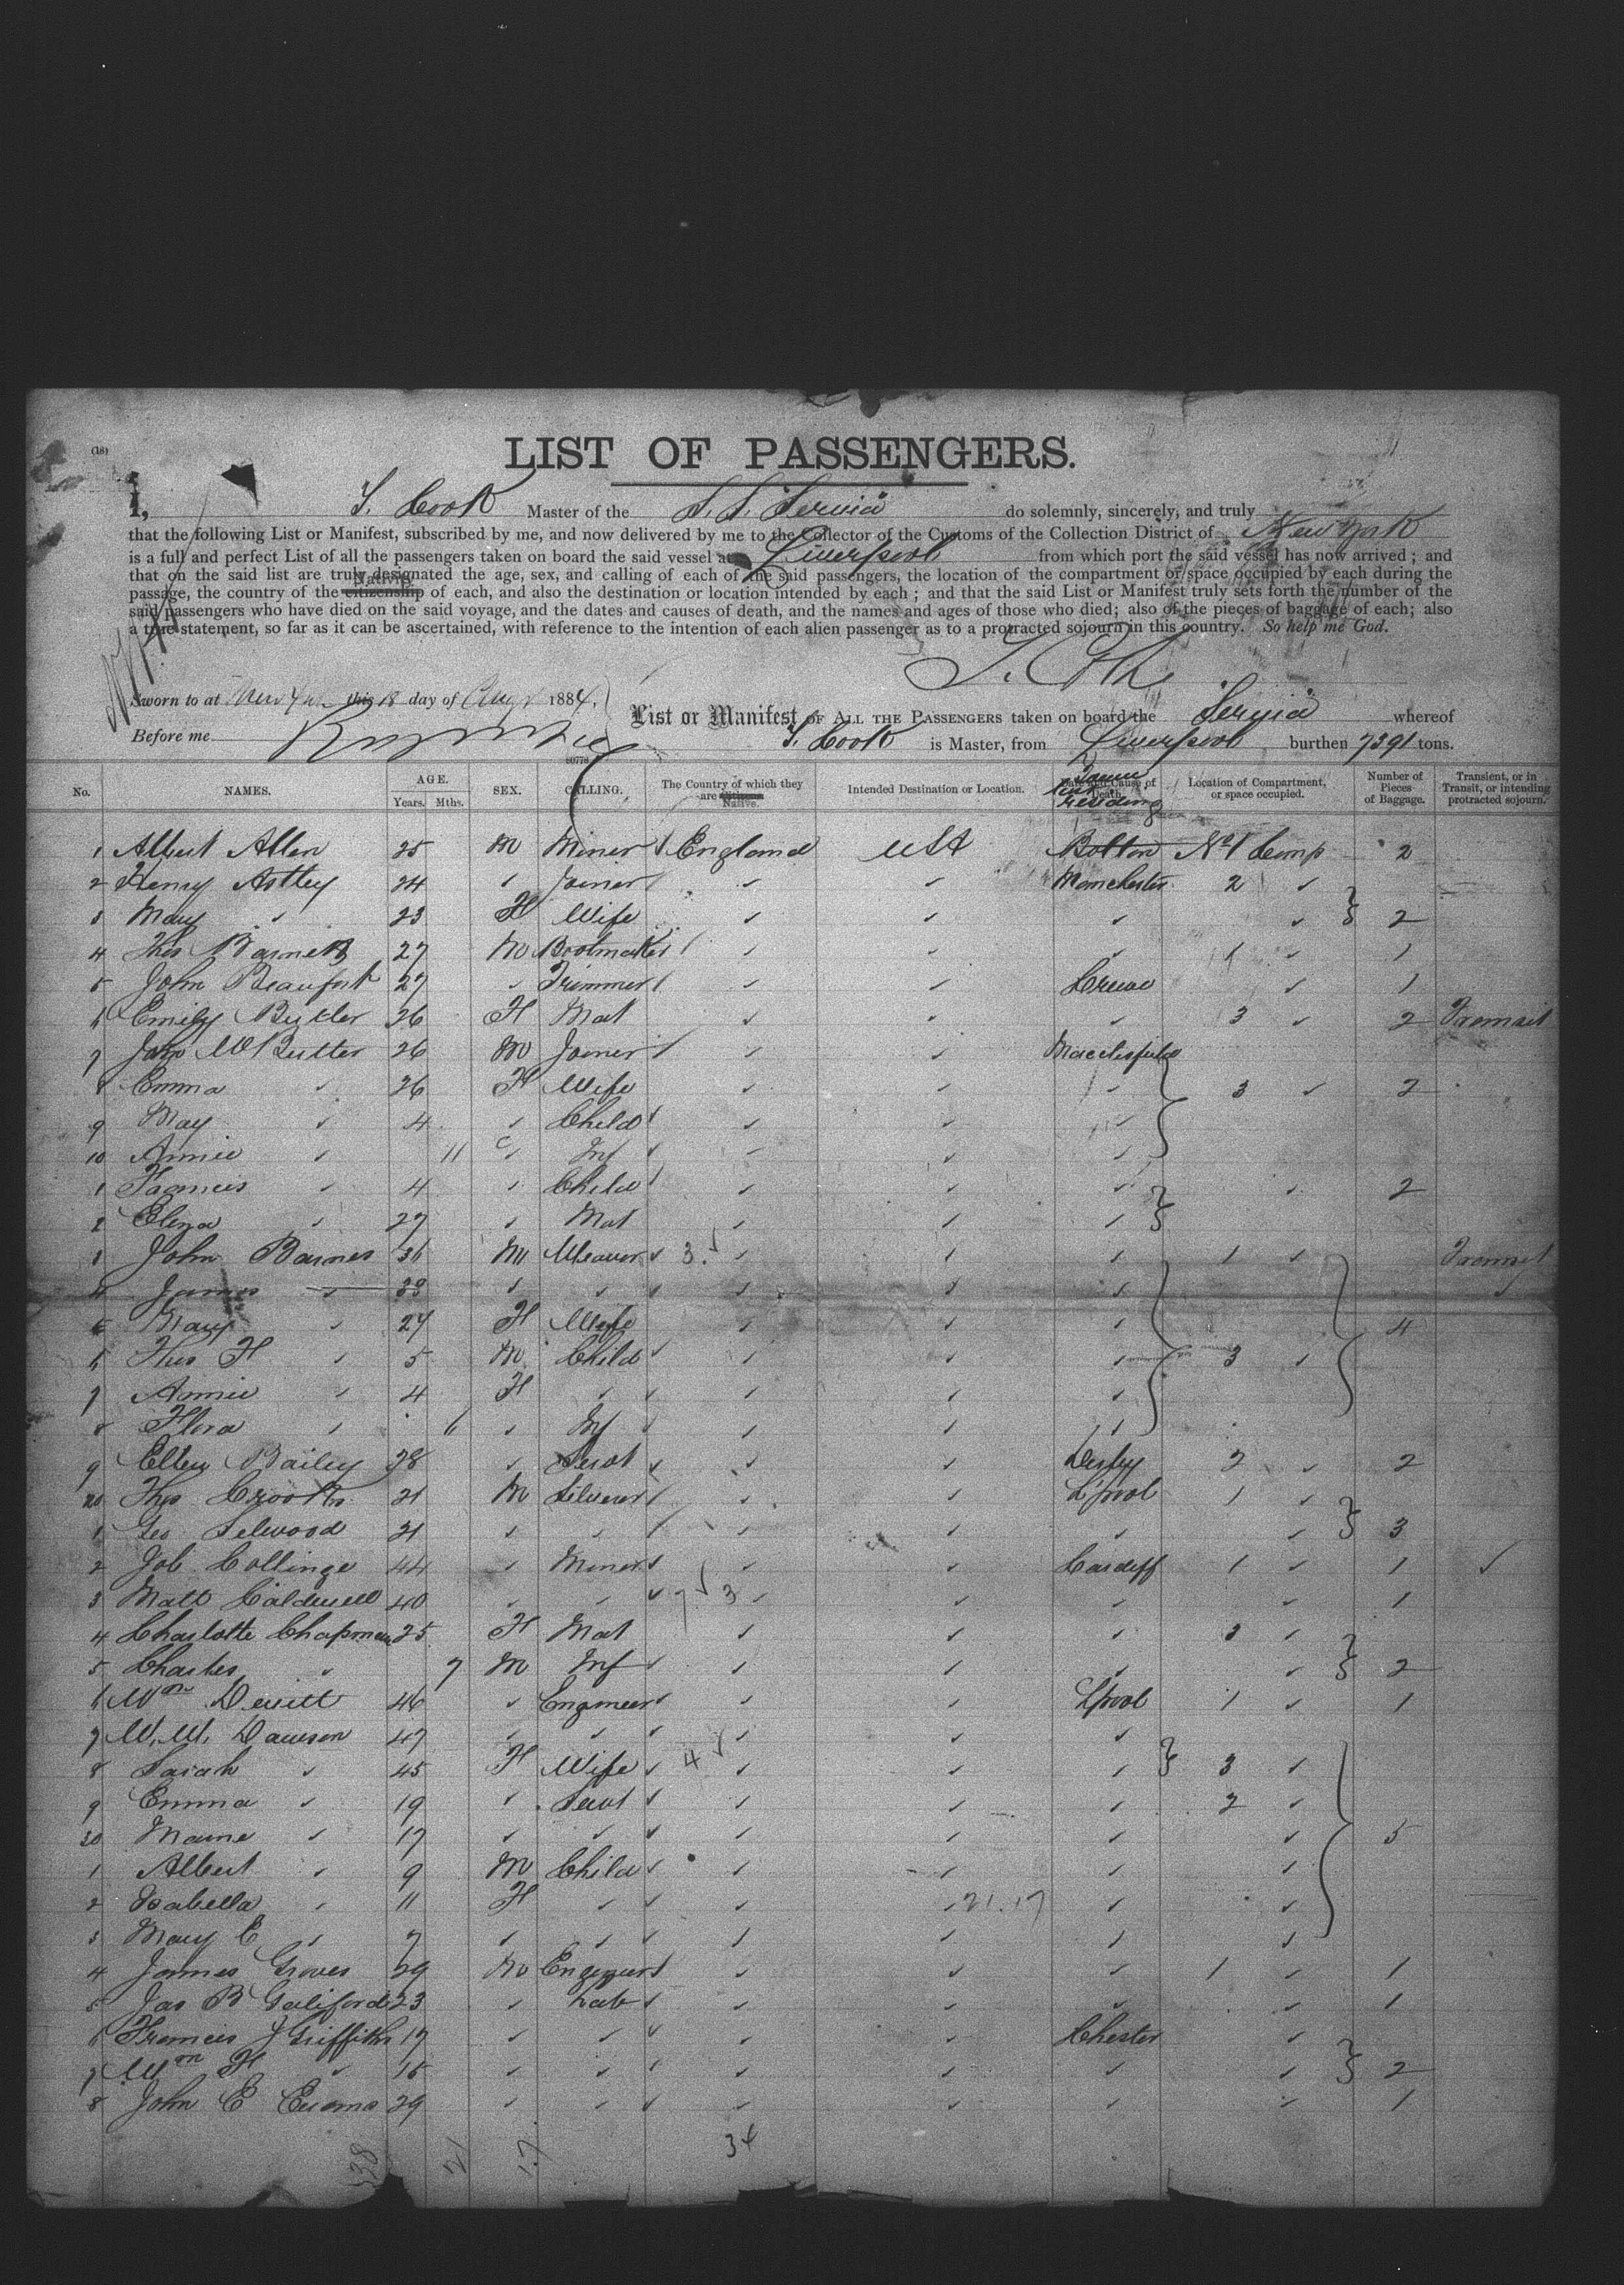 (18)
LIST OF PASSENGERS.
I, T. Cook Master of the S. S. "Servia" do solemnly, sincerely, and truly
that the following List or Manifest, subscribed by me, and now delivered by me to the Collector of the Customs of the Collection District of New York
is a full and perfect List of all the passengers taken on board the said vessel at Liverpool from which port the said vessel has now arrived ; and
that on the said list are truly designated the age, sex, and calling of each of the said passengers, the location of the compartment or space occupied by each during the
Native.
passage, the country of the citizenship of each, and also the destination or location intended by each ; and that the said List or Manifest truly sets forth the number of the
said passengers who have died on the said voyage, and the dates and causes of death, and the names and ages of those who died; also of the pieces of baggage of each; also
a true statement, so far as it can be ascertained, with reference to the intention of each alien passenger as to a protracted sojourn in this country. So help me God.
Sworn to at New York this 18 day of Augt 1884,
Before me
List or Manifest OF ALL THE PASSENGERS taken on board the "Servia" whereof
T. Cook is Master, from Liverpool burthen 7391 tons.
No. NAMES. AGE. Years. Mths. SEX. CALLING. The Country of which they are Citizens. Native. Intended Destination or Location. Date and Cause of Death. residing Location of Compartment, or space occupied. Number of Pieces of Baggage. Transient, or in Transit, or intending protracted sojourn.
1 Albert Allen 25 M Miner England USA Bolton No 1 Comp 2
2 Henry Astley 24 ✓ Joiner ✓ ✓ Manchester 2 ✓
3 Mary ✓ 23 F Wife ✓ ✓ ✓ ✓ 2
4 Thos Barnett 27 M Bootmaker ✓ ✓ ✓ 1 ✓ 1
5 John Beaufort 27 ✓ Trimmer ✓ ✓ Crewe ✓ 1
6 Emily Butler 26 F Mat ✓ ✓ ✓ 3 ✓ 2 Transit
7 Jno W Butler 26 M Joiner ✓ ✓ Macclesfield
8 Emma ✓ 26 F Wife ✓ ✓ ✓ 3 ✓ 2
9 May ✓ 4 ✓ Child ✓ ✓ ✓
10 Annie ✓ 11 ✓ Inf ✓ ✓ ✓ ✓
1 Frances ✓ 4 ✓ Child ✓ ✓ ✓ ✓ 2
2 Eliza ✓ 27 ✓ Mat ✓ ✓ ✓
3 John Barnes 36 M Weaver ✓ 3 ✓ ✓ ✓ ✓ 1 ✓ Transit
4 James ✓ 38 ✓ ✓ ✓ ✓ ✓ ✓ ✓
5 Mary ✓ 27 F Wife ✓ ✓ ✓ 4
6 Thos H ✓ 5 M Child ✓ ✓ ✓ ✓ 3 ✓
7 Annie ✓ 4 F ✓ ✓ ✓ ✓ ✓
8 Flora ✓ 6 ✓ Inf ✓ ✓ ✓ ✓
9 Ellen Bailey 28 ✓ Servt ✓ ✓ ✓ Derby 2 ✓ 2
20 Thos Crooks 21 M ✓ ✓ L'pool 1 ✓
1 Geo Selwood 21 ✓ ✓ ✓ ✓ ✓ ✓ 3
2 Job Collinge 44 ✓ Miner ✓ ✓ ✓ Cardiff 1 ✓ 1 ✓
3 Matt Caldwell 40 ✓ ✓ ✓ 7 ✓ 3 ✓ ✓ ✓ ✓ 1
4 Charlotte Chapman 25 F Mat ✓ ✓ ✓ 3 ✓
5 Charles ✓ 7 M Inf ✓ ✓ ✓ ✓ ✓ 2
6 Wm Devitt 46 ✓ Engineer ✓ ✓ ✓ L'pool 1 ✓ 1
7 W. W. Dawson 47 ✓ ✓ ✓ ✓ ✓ ✓
8 Sarah ✓ 45 F Wife ✓ 4 ✓ ✓ ✓ ✓ 3 ✓
9 Emma ✓ 19 ✓ Servt ✓ ✓ ✓ ✓ 2 ✓
30 Marne ✓ 17 ✓ ✓ ✓ ✓ ✓ ✓ ✓ 5
1 Albert ✓ 9 M Child ✓ ✓ ✓ ✓ ✓
2 Isabella ✓ 11 F ✓ ✓ ✓ ✓ 21.17 ✓ ✓
3 Mary E ✓ 7 ✓ ✓ ✓ ✓ ✓ ✓ ✓
4 James Groves 29 M Engineer ✓ ✓ ✓ 1 ✓ 1
5 Jas B Galiford 23 ✓ Lab ✓ ✓ ✓ ✓ ✓ 1
6 Francis J Griffiths 17 ✓ ✓ ✓ ✓ ✓ Chester ✓
7 Wm H ✓ 15 ✓ ✓ ✓ ✓ ✓ ✓ ✓ 2
8 John E Evans 29 ✓ ✓ ✓ ✓ ✓ ✓ ✓ 1
38 21 17 34